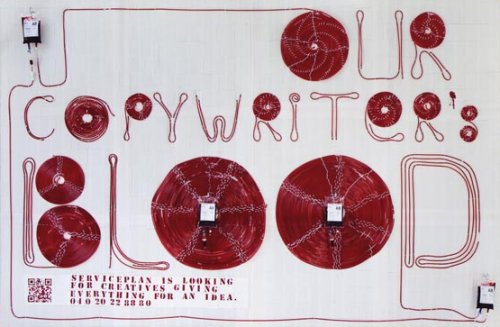 OUR
COPYWRITER'S
BLOOD
SERVICEPLAN IS LOOKING
FOR CREATIVES GIVING
EVERYTHING FOR AN IDEA.
040 20 22 88 80